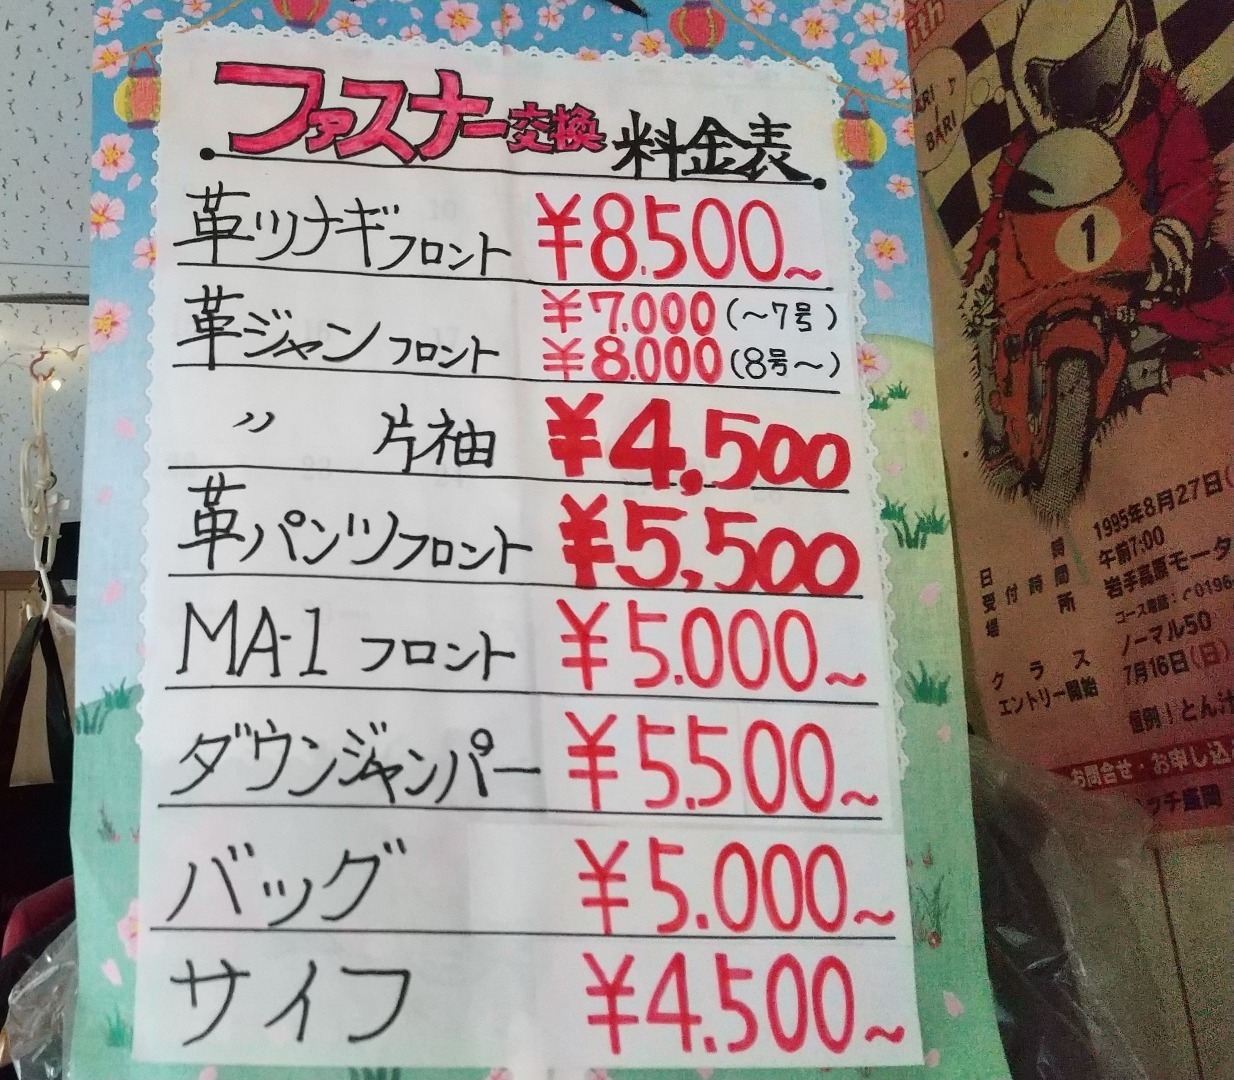 ファスナー交換 料金表
革ツナギフロント ¥8.500~
革ジャンフロント ¥7.000(~7号)
¥8.000(8号~)
〃 片袖 ¥4,500
革パンツフロント ¥5,500
MA-1 フロント ¥5.000~
ダウンジャンパー ¥5.500~
バッグ ¥5.000~
サイフ ¥4.500~
BARI
1
1995年8月27日(
受付時間 午前7:00
場所 岩手高原モータ
コース電話:
クラス ノーマル50
エントリー開始 7月16日(日)
恒例!とん汁
お問合せ・お申し込み